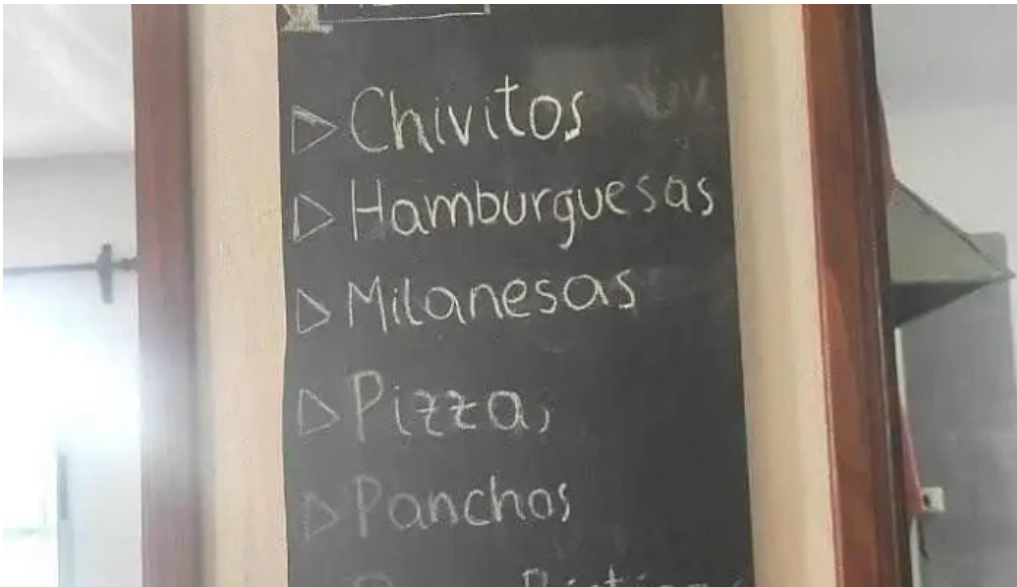 ▷ Chivitos
▷ Hamburguesas
▷ Milanesas
▷ Pizza,
▷ Panchos